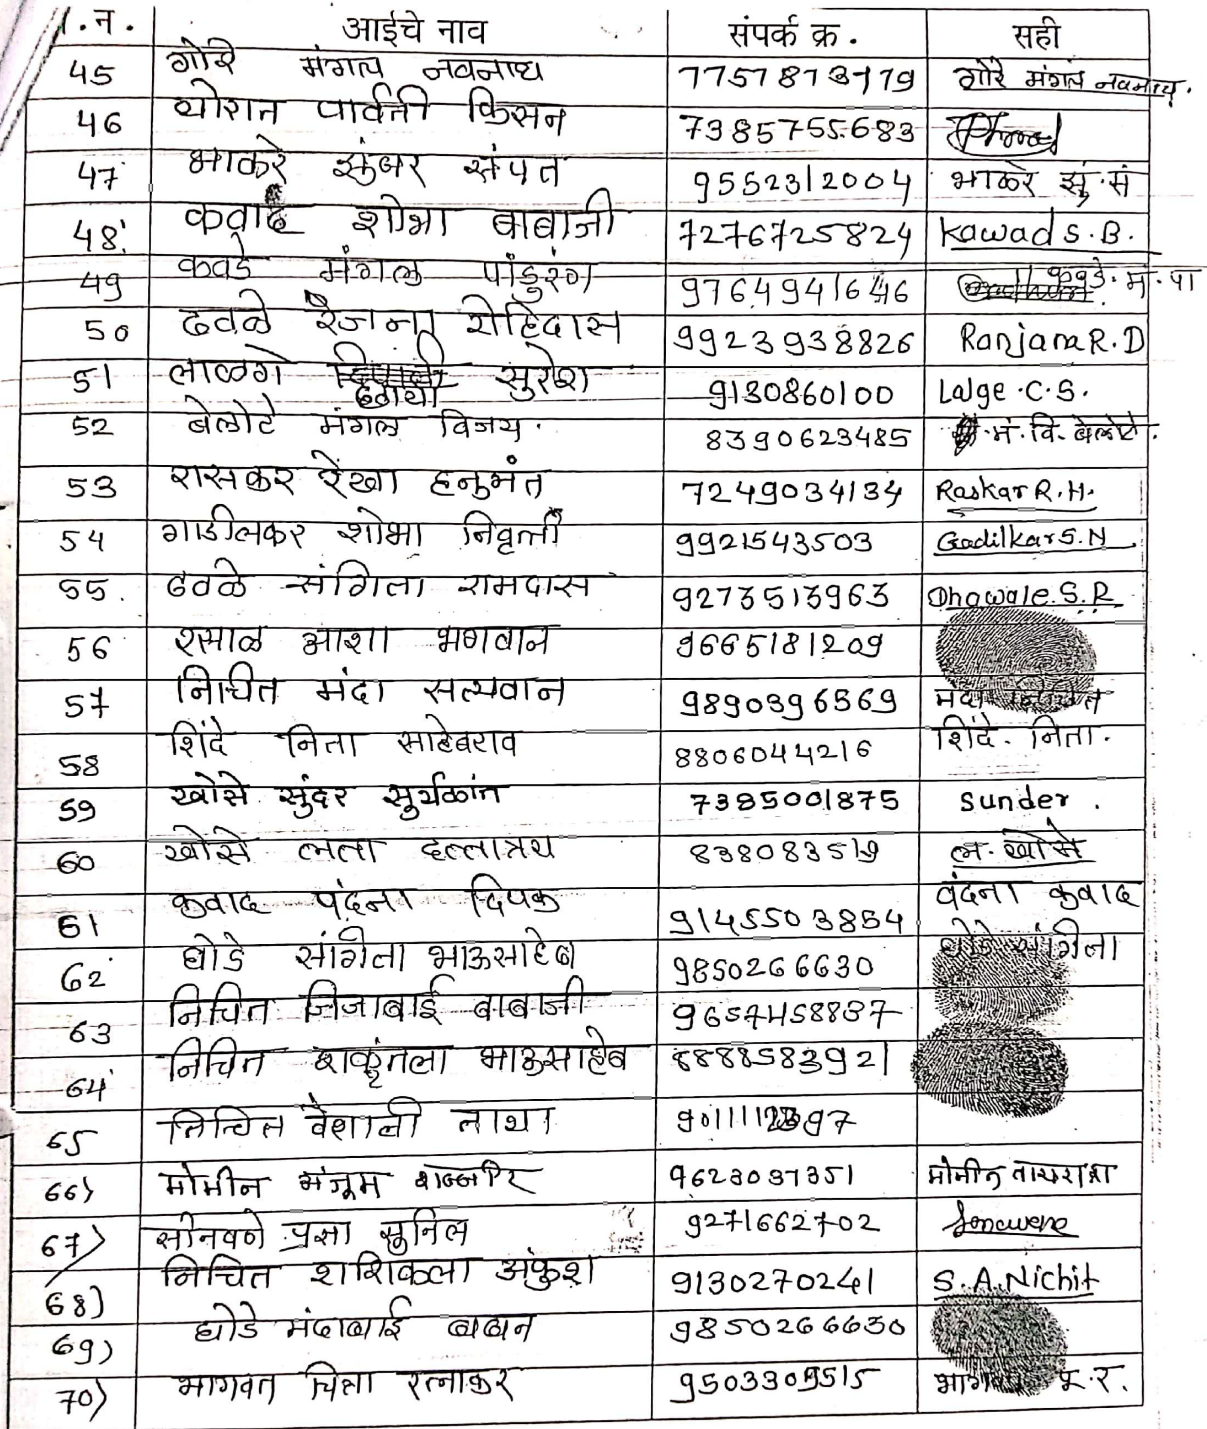 .न. आईचे नाव संपर्क क्र. सही
45 गोरे मंगल नवनाथ 7757873779 गोरे मंगल नवनाथ.
46 थोरात पार्वती किसन 7385755683
47 भाकरे झुंबर संपत 9552312004 भाकरे झुं.सं
48 कवाद शोभा बाबाजी 7276725824 Kawad S.B.
49 कवडे मंगल पांडुरंग 9764941646 कवडे.मं.पा
50 ढवळे रंजना रोहिदास 9923938826 Ranjana R.D
51 लाळगे सुरेश 9130860100 Lalge.C.S.
52 बेलोटे मंगल विजय. 8390623485 मं.वि.बेलोटे.
53 रासकर रेखा हनुमंत 7249034134 Raskar R.H.
54 गाडीलकर शोभा निवृत्ती 9921543503 Gadilkar S.N
55. ढवळे संगिता रामदास 9273513963 Dhawale.S.R
56 रसाळ आशा भगवान 9665181209
57 निचित मंदा सत्यवान 9890396569 मंदा निचित
58 शिंदे निता साहेबराव 8806044216 शिंदे. निता.
59 खोसे सुंदर सुर्यकांत 7385001875 Sunder.
60 खोसे लता दत्तात्रय 838083519 ल. खोसे
61 कवाद वंदना दिपक 9145503854 वंदना कवाद
62 घोडे सांगिता भाऊसाहेब 9850266630 घोडे सांगिता
63 निचित जिजाबाई बाबाजी 9657458837
64 निचित शकुंतला भाऊसाहेब 8888583921
65 निचित वैशाली नाथा
66) मोमीन शब्बीर 9623037351 मोमीन
67) सोनवणे सुनिल 9271662702 Sonawane
68) निचित शशिकला अंकुश 9130270241 S.A.Nichit
69) घोडे मंदाबाई बबन 9850266630
70) भागवत रत्नाकर 9503309515 भागवत